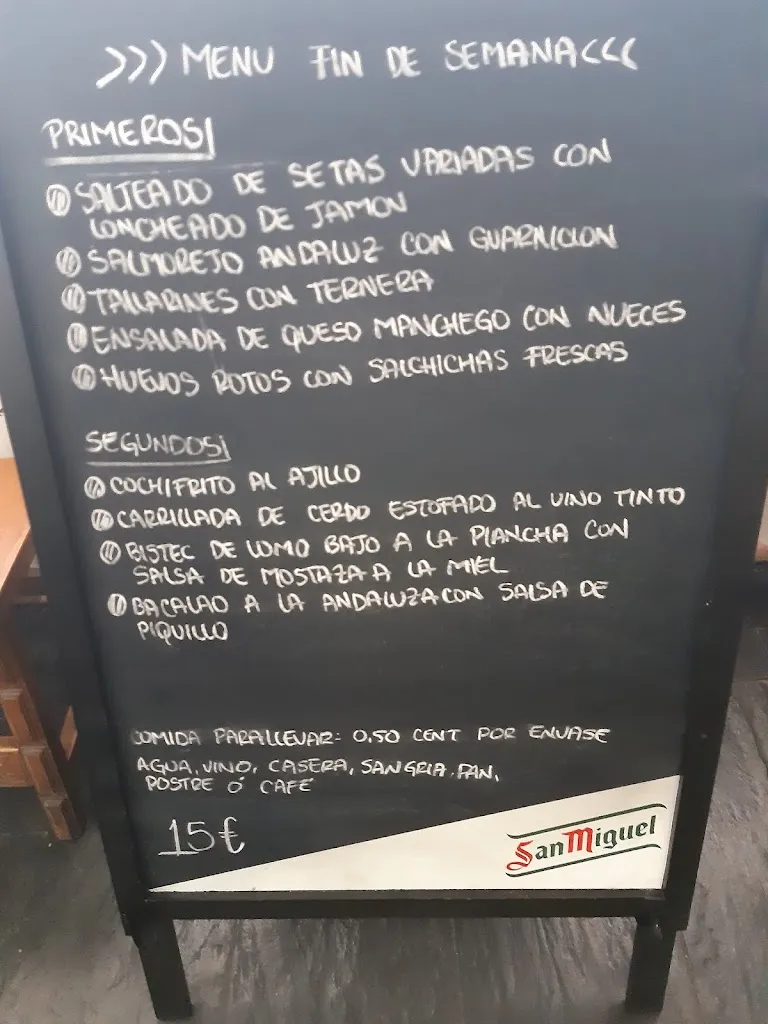 >>> MENU FIN DE SEMANA <<<
PRIMEROS¡
SALTEADO DE SETAS VARIADAS CON
LONCHEADO DE JAMON
SALMOREJO ANDALUZ CON GUARNICION
TALLARINES CON TERNERA
ENSALADA DE QUESO MANCHEGO CON NUECES
HUEVOS ROTOS CON SALCHICHAS FRESCAS
SEGUNDOS¡
COCHIFRITO AL AJILLO
CARRILLADA DE CERDO ESTOFADO AL VINO TINTO
BISTEC DE LOMO BAJO A LA PLANCHA CON
SALSA DE MOSTAZA A LA MIEL
BACALAO A LA ANDALUZA CON SALSA DE
PIQUILLO
COMIDA PARA LLEVAR: 0,50 CENT POR ENVASE
AGUA, VINO, CASERA, SANGRIA, PAN,
POSTRE Ó CAFÉ
15€
San Miguel